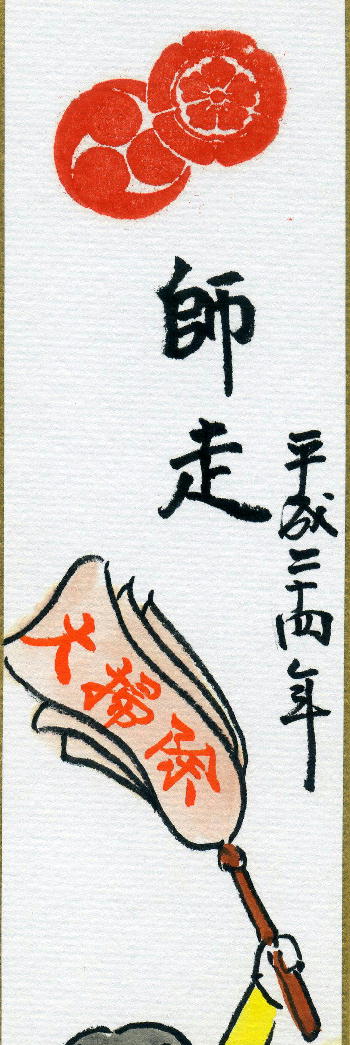 師走
平成二十四年
大掃除